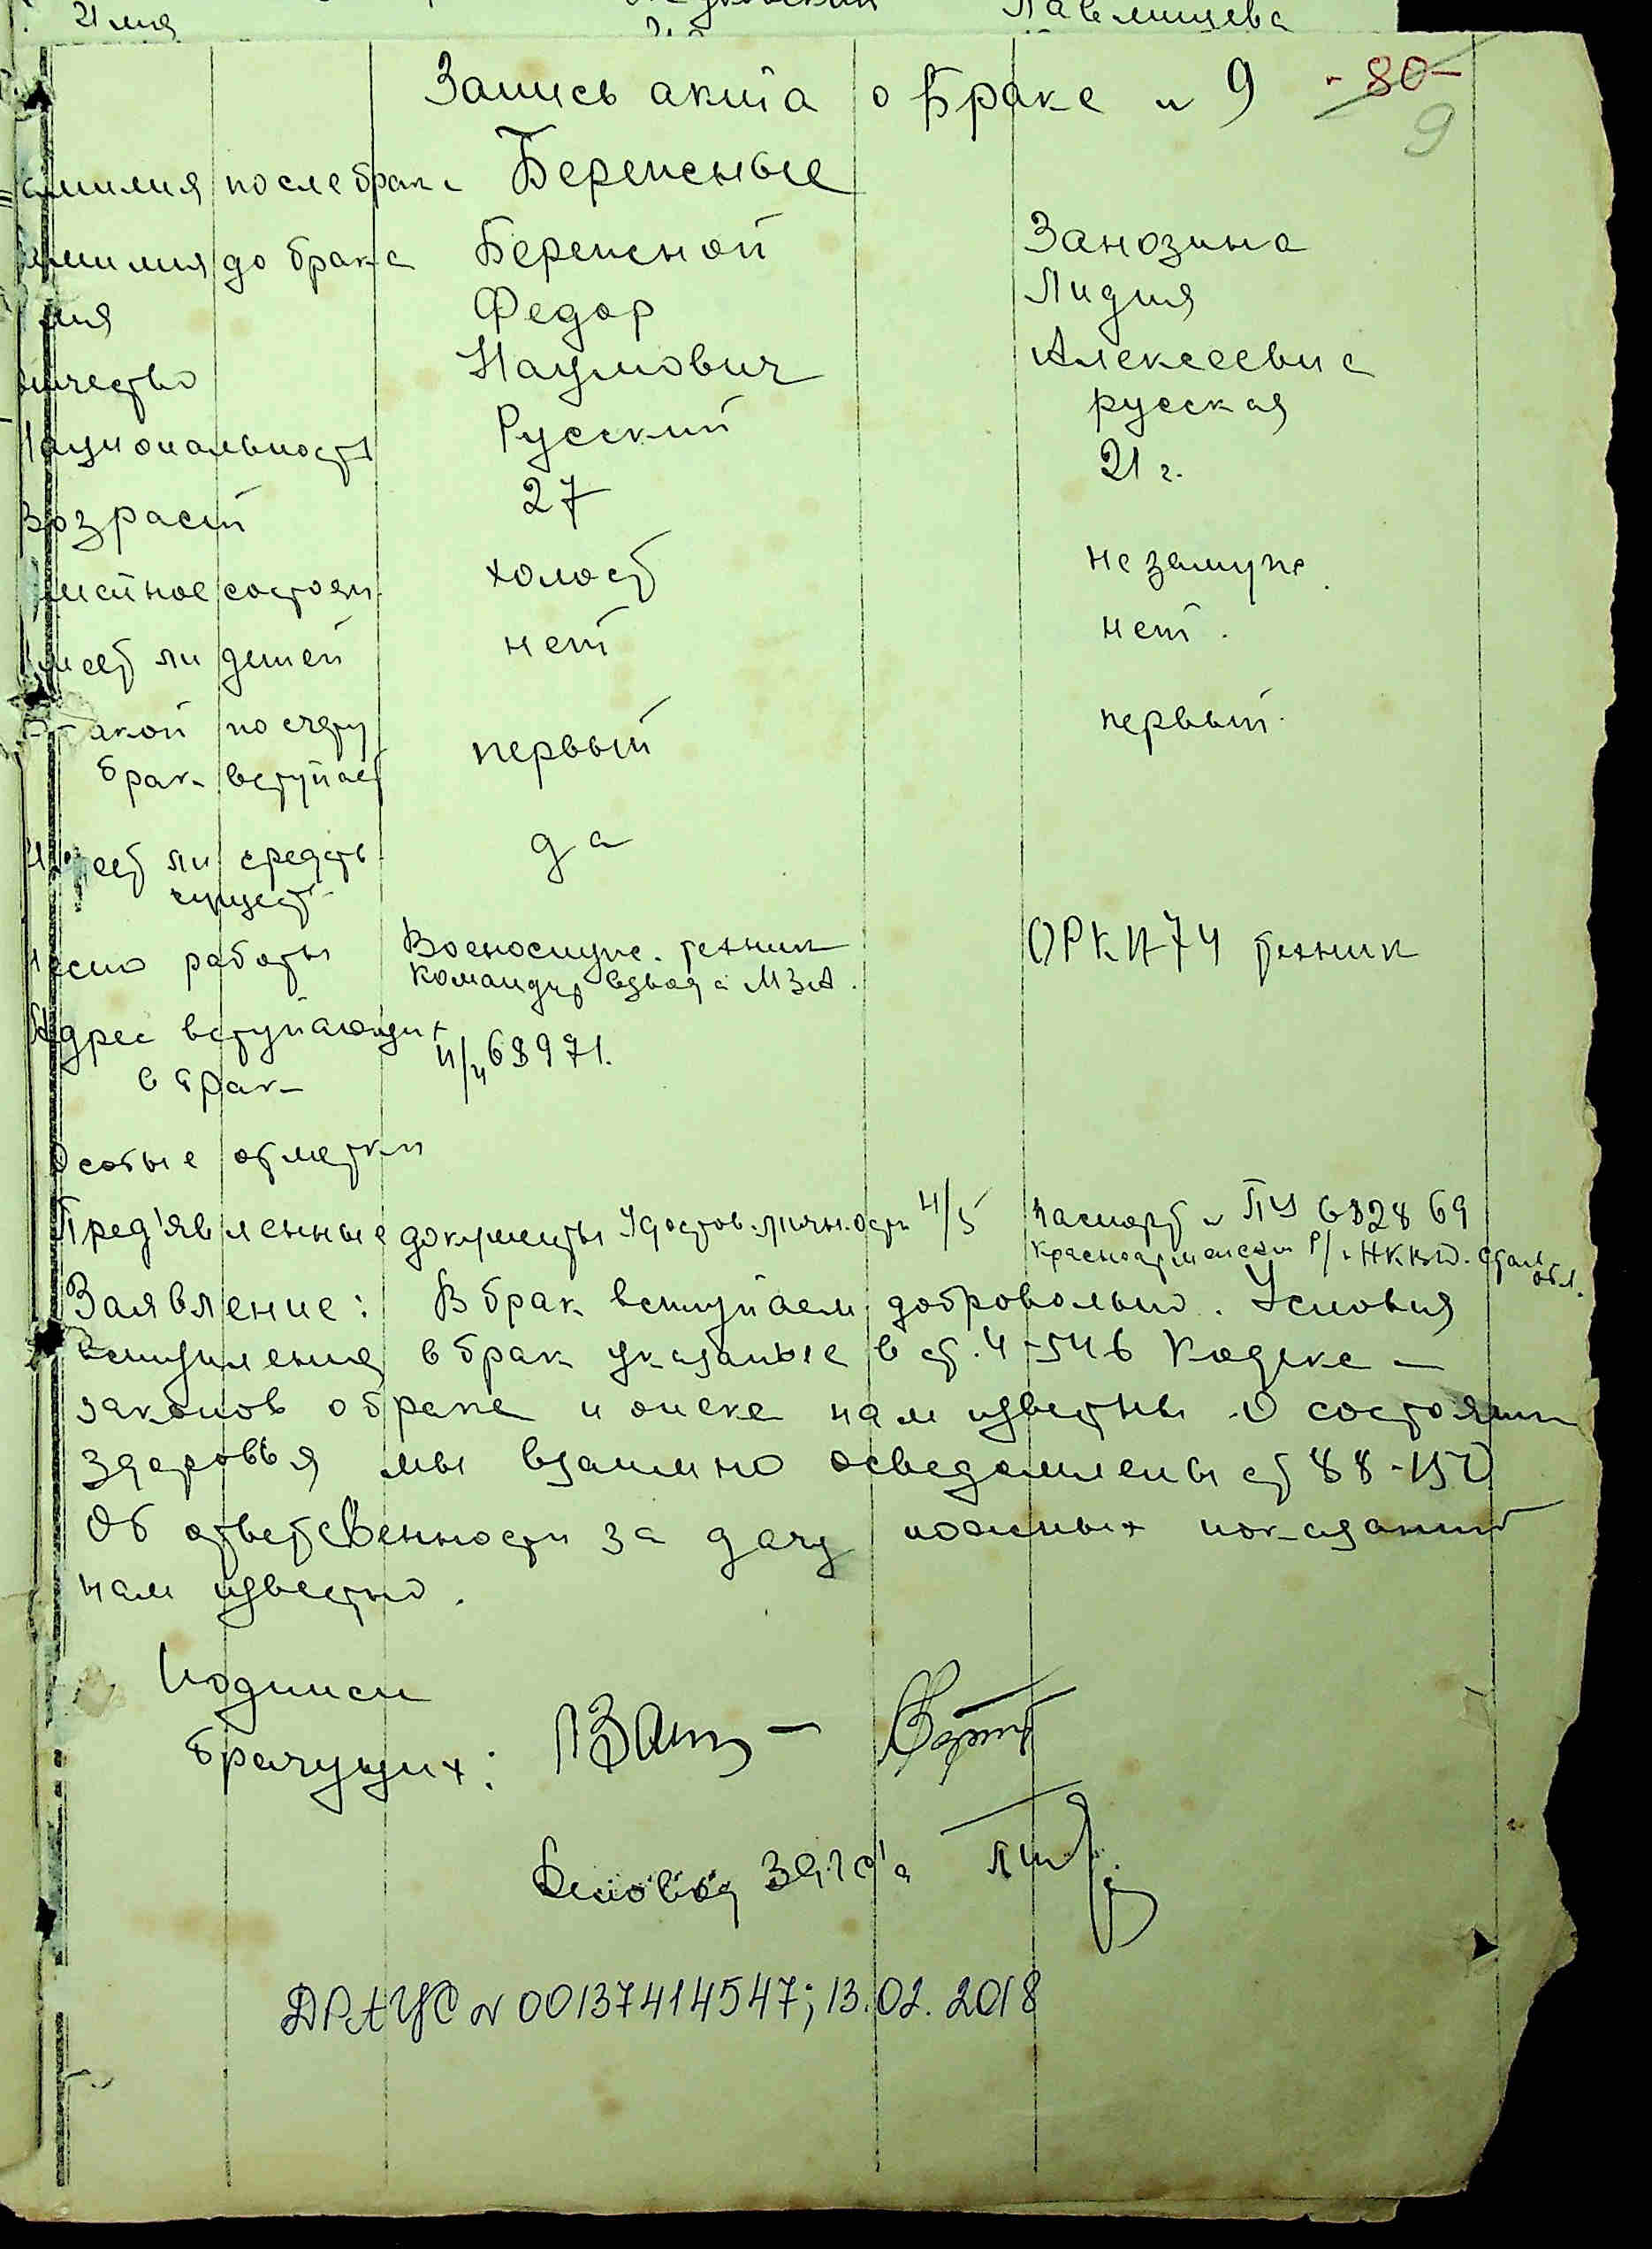 21 мая Павлищева
Запись акта о браке N 9 -80-
9
амилия после брака Бережные
амилия до брака Бережной Занозина
мя Федор Лидия
отчество Наумович Алексеевна
Национальность Русский русская
Возраст 27 21 г.
мейное состоян. холост не замуже.
Имеет ли детей нет нет.
В какой по счету первый первый.
брак вступает
Имеет ли средств да
сущест
Место работы Военнослуж. техник ОРК N 74 техник
Командир взвода МЗА.
Адрес вступающих п/п 63971.
в брак
Особые отметки
Пред'явленные документы Удостов. личности Н/5 Паспорт N ПУ 632869
Красноармейским Р/о НКВД. Стал обл.
Заявление: В брак вступаем добровольно. Условия
вступления в брак указаные в ст. 4-5 и 6 Кодекса
законов о браке и опеке нам известны. О состоянии
здоровья мы взаимно осведомлены ст 88-150
Об ответсвенности за дачу ложных показаний
нам известно.
Подписи
брачущих:
Деловод ЗАГС'а
ДРАЦС N 00137414547; 13.02.2018